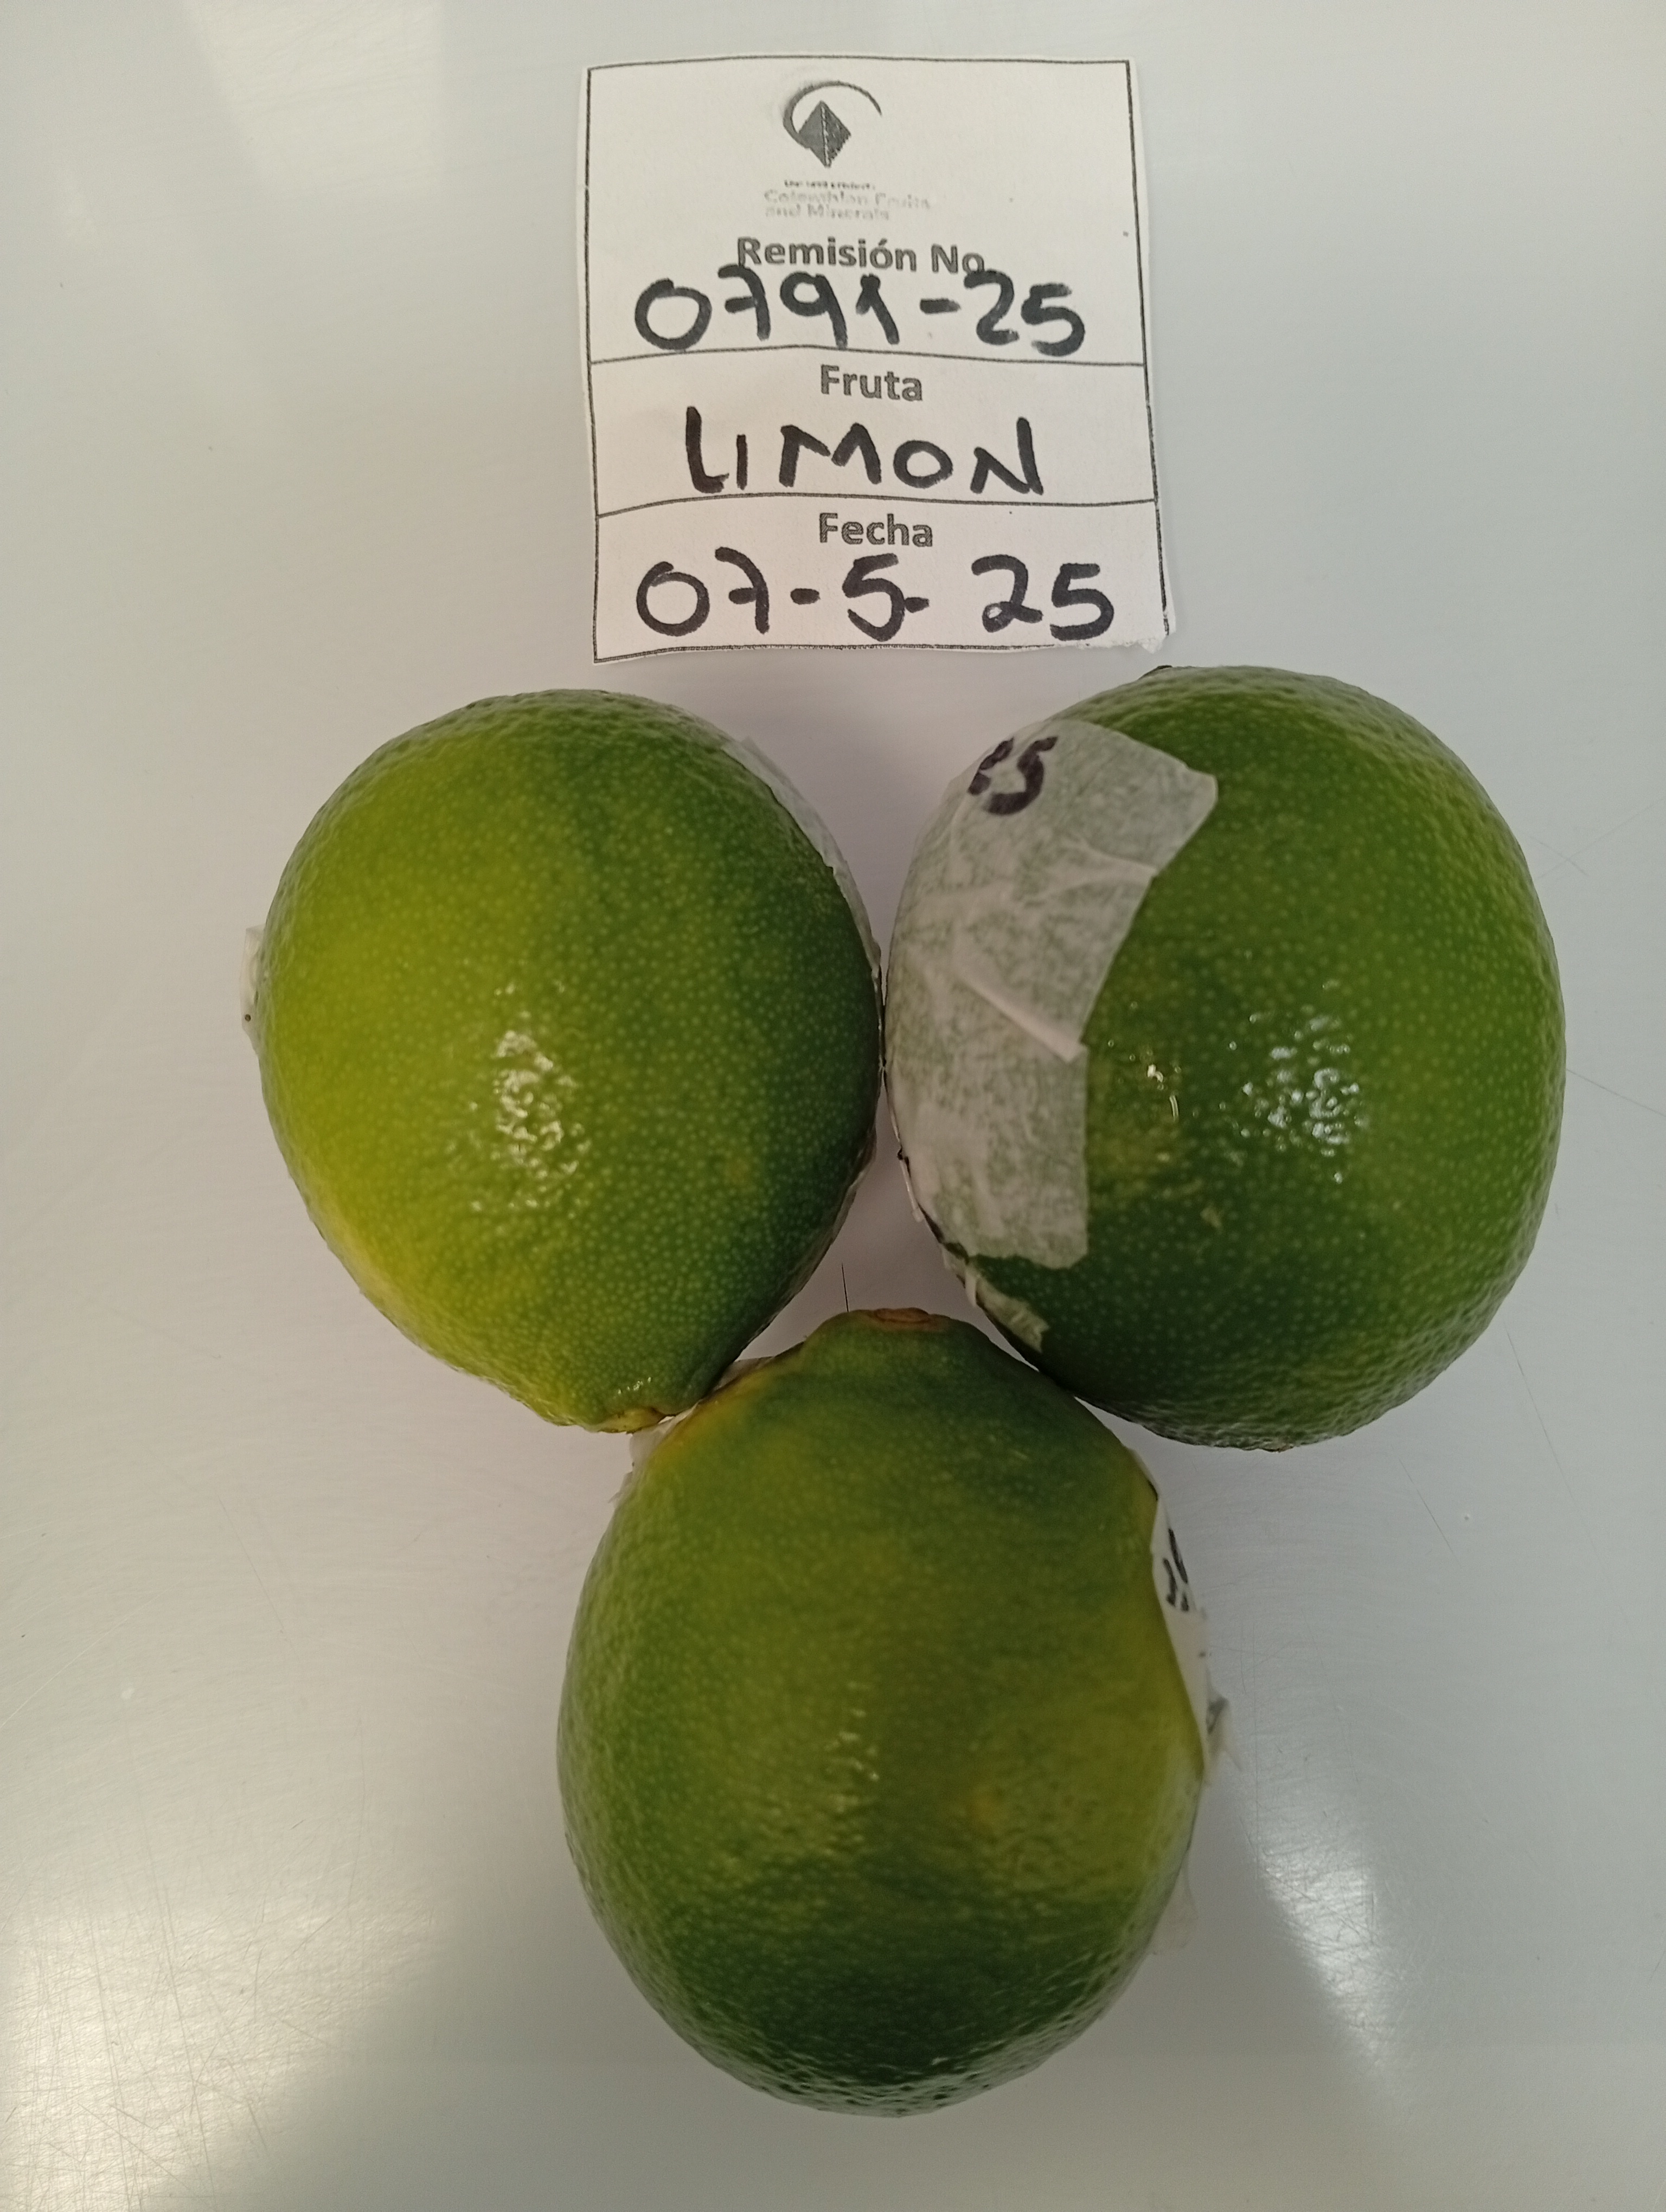 Colombian Fruits
and Minerals
Remisión No.
0791-25
Fruta
LIMON
Fecha
07-5-25
25